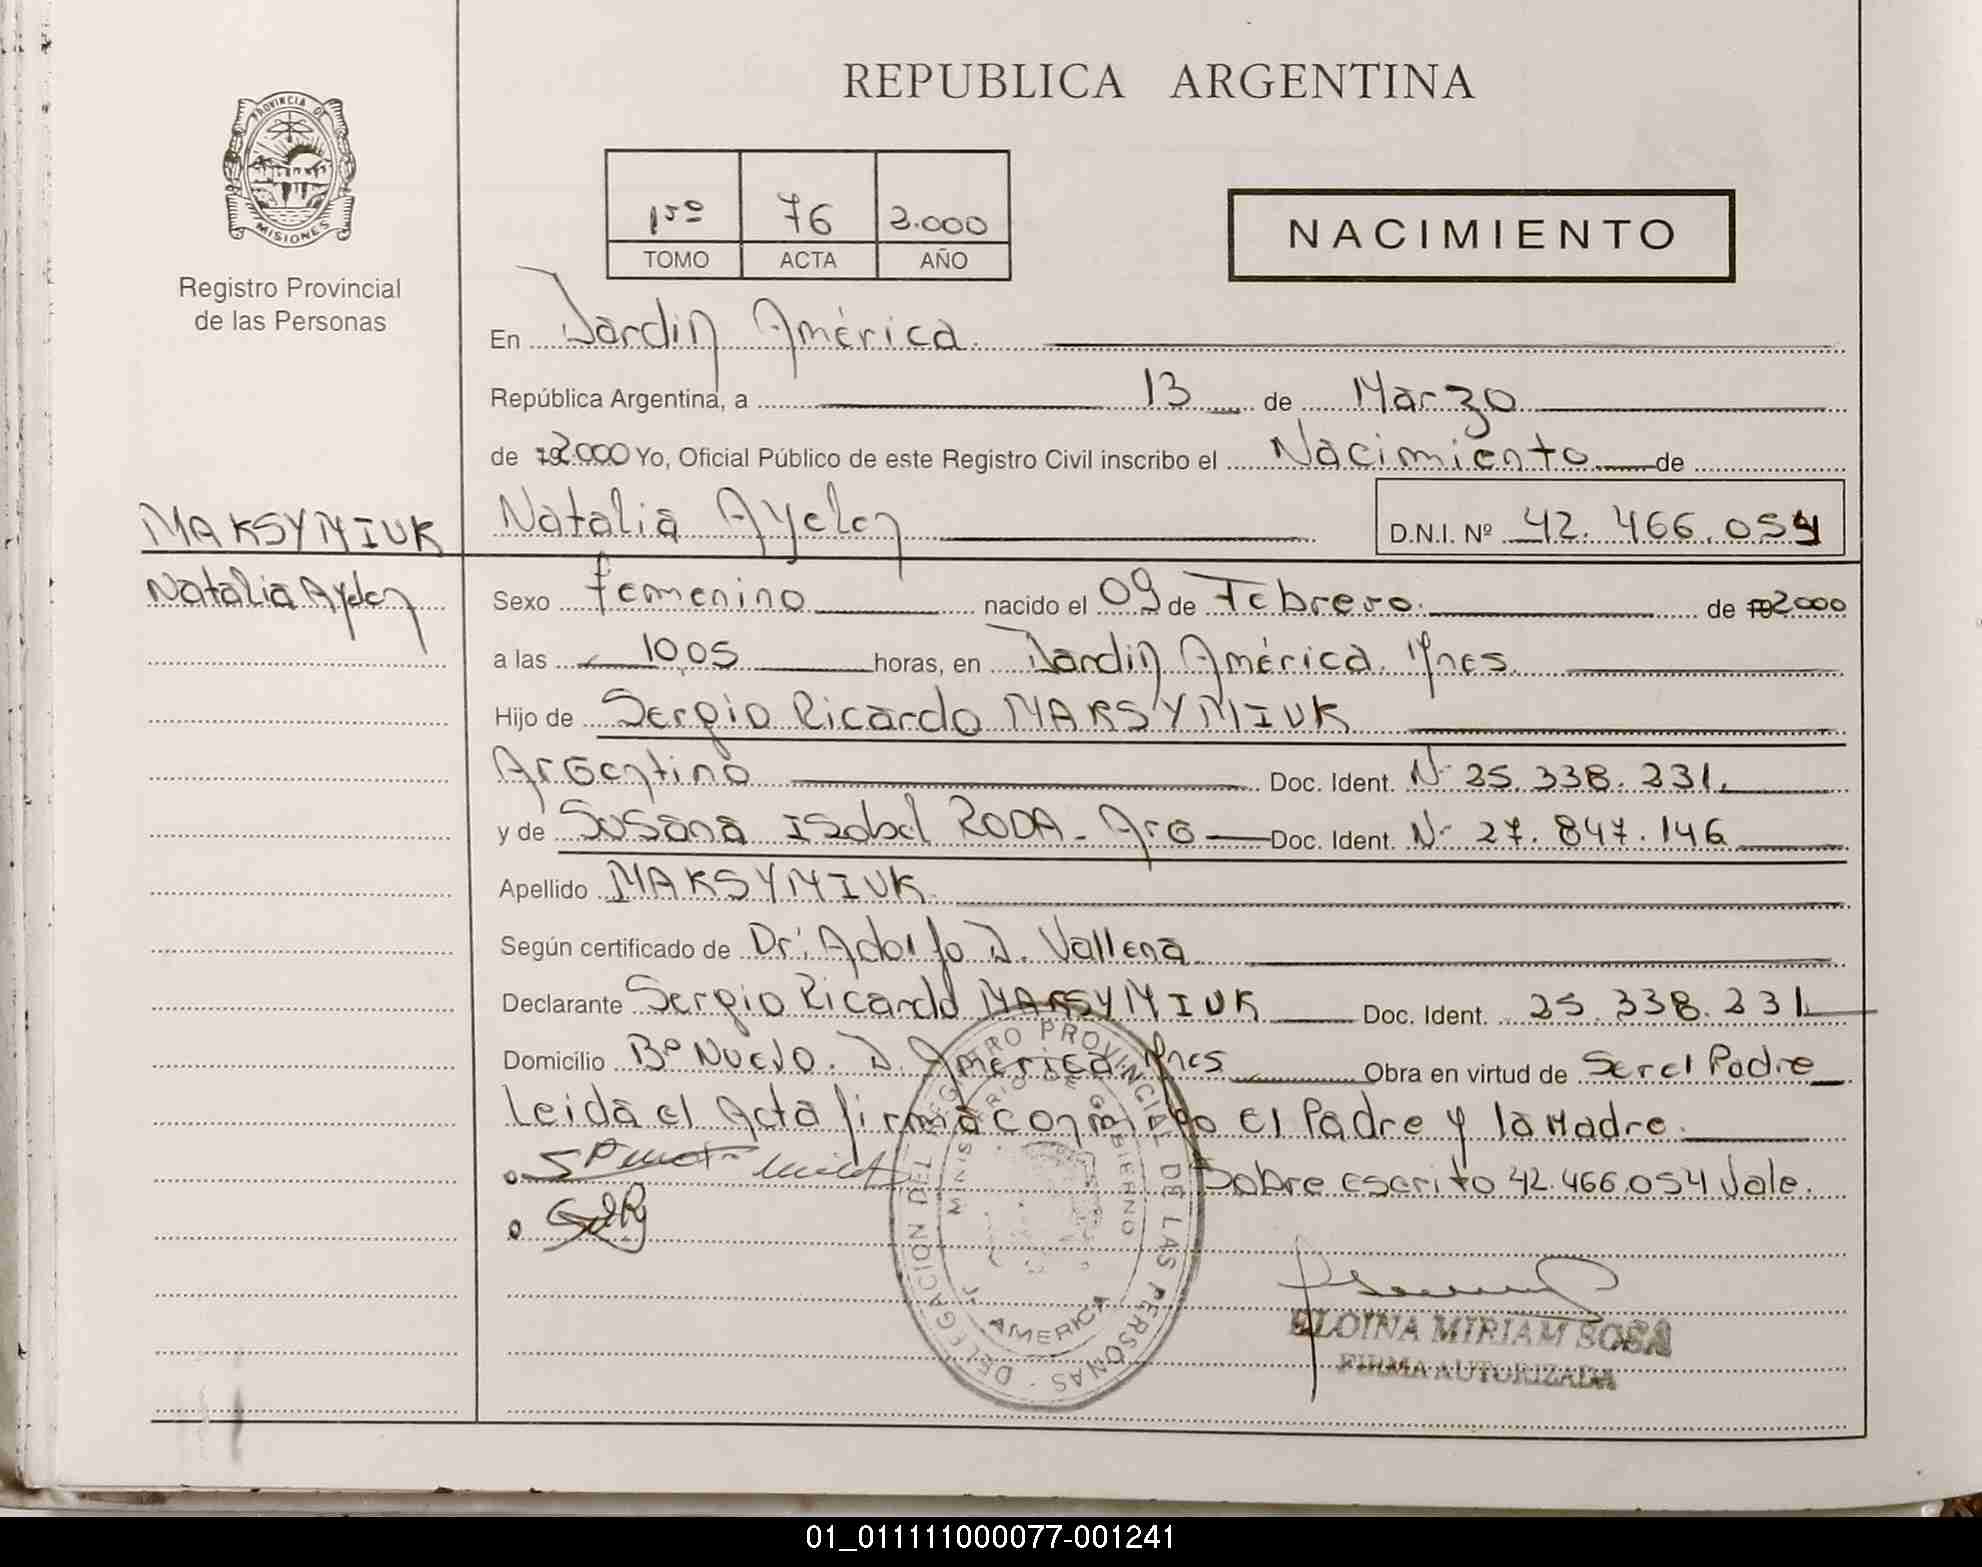 PROVINCIA DE
MISIONES
Registro Provincial
de las Personas
REPUBLICA ARGENTINA
1ro 76 2.000
TOMO ACTA AÑO
NACIMIENTO
En Jardin América.
República Argentina, a 13 de Marzo
de 192.000 Yo, Oficial Público de este Registro Civil inscribo el Nacimiento de
MAKSYMIUK Natalia Ayelen D.N.I. Nº 42.466.054
Natalia Ayelen Sexo femenino nacido el 09 de Febrero. de 2000
a las 10,05 horas, en Jardin América. Mnes.
Hijo de Sergio Ricardo MAKSYMIUK
Argentino Doc. Ident. Nº 25.338.231.
y de Susana Isabel RODA - Arg Doc. Ident. Nº 27.847.146
Apellido MAKSYMIUK.
Según certificado de Dr: Adolfo D. Vallena
Declarante Sergio Ricardo MAKSYMIUK Doc. Ident. 25.338.231
Domicilio Bº Nuevo. J. América. Mnes Obra en virtud de Ser el Padre
Leida el Acta firma conmigo El Padre y la Madre.
Sobre escrito 42.466.054 Vale.
DELEGACION DEL REGISTRO PROVINCIAL DE LAS PERSONAS
MINISTERIO DE GOBIERNO
J. AMERICA
ELOINA MIRIAM SOSA
FIRMA AUTORIZADA
01_011111000077-001241